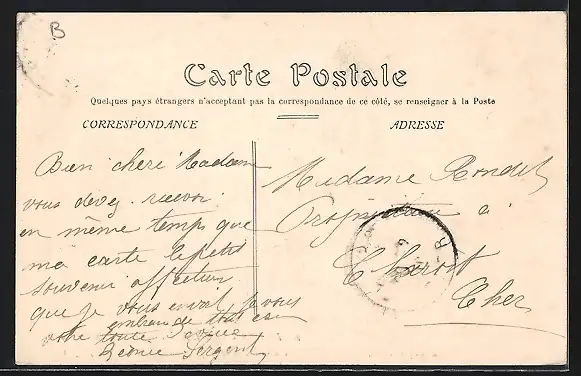 B
Carte Postale
Quelques pays étrangers n'acceptant pas la correspondance de ce côté, se renseigner à la Poste
CORRESPONDANCE
ADRESSE
Bien cheré Madame
vous devez recevoir
en même temps que
ma carte le petit
souvenir affectueu
que je vous envoi je vous
embrasse tout
votre toute
Léonie Sergent
Madame Rondet
Propriétaire à
Charost
Cher